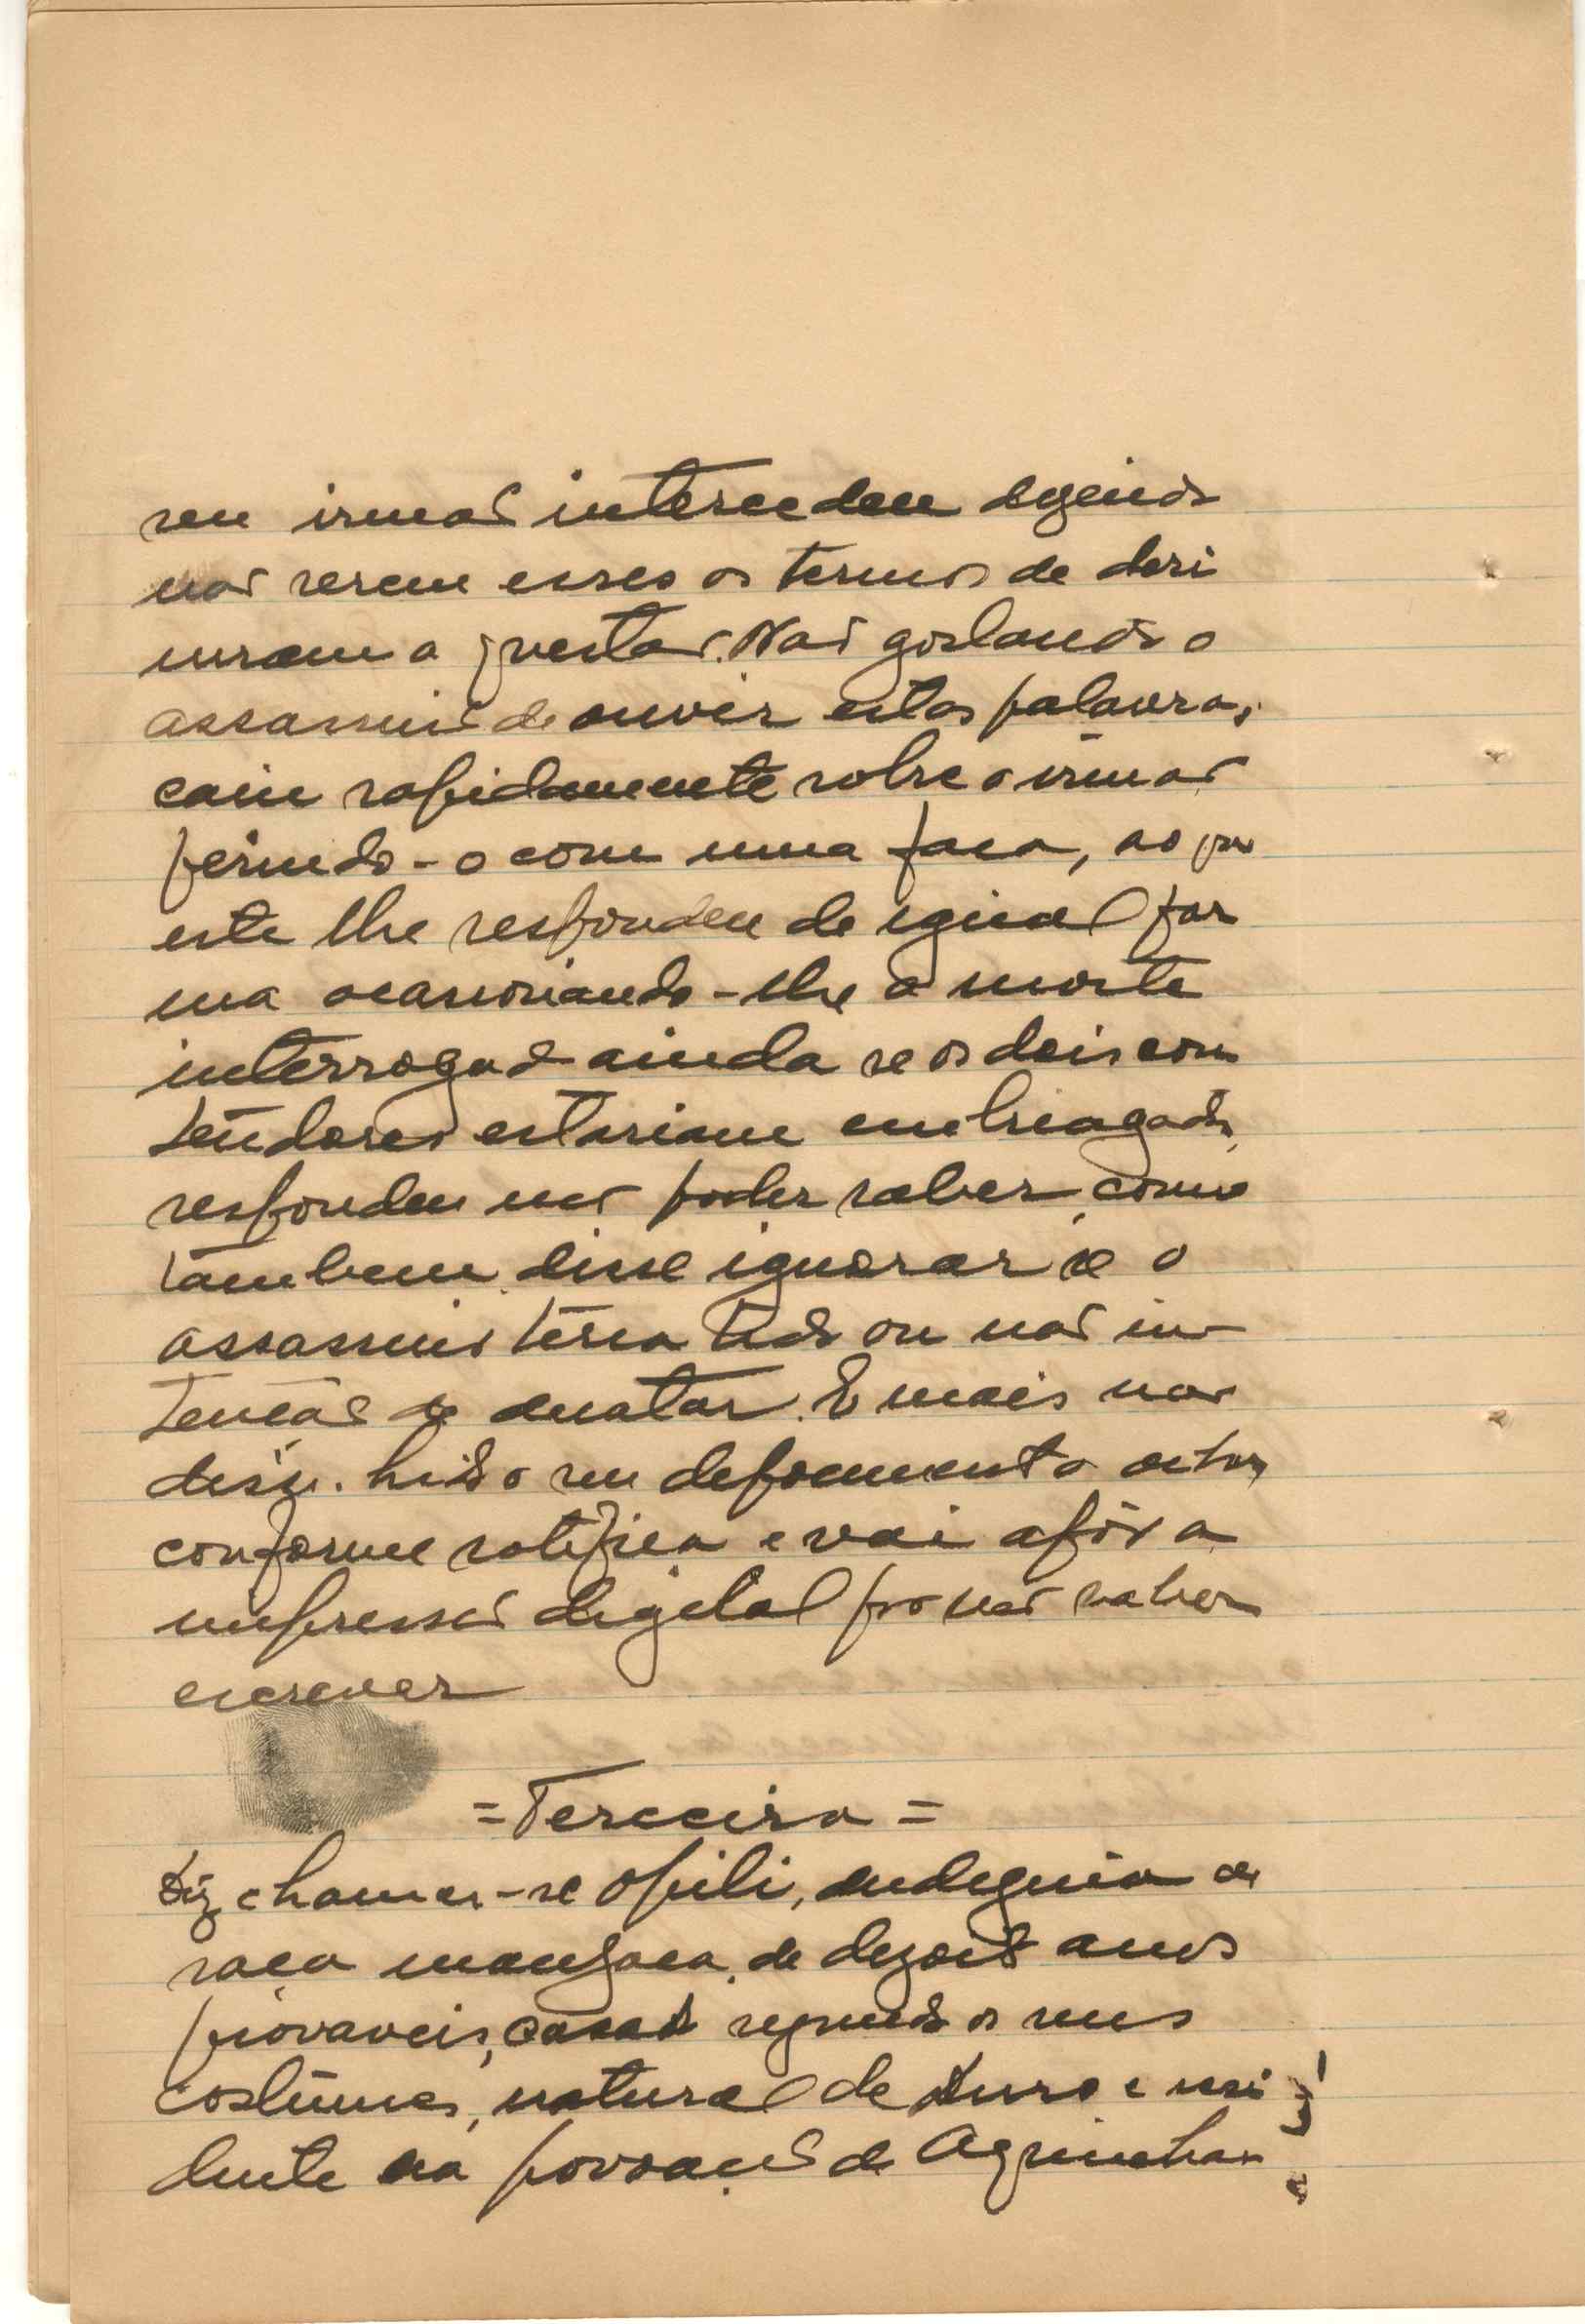 seu irmão intercedeu dizendo
não serem esses os termos de diri
mirem a questão. Não gostando o
assassino de ouvir estas palavras,
caiu rapidamente sobre o irmão
ferindo-o com uma faca, ao que
este lhe respondeu de igual for
ma ocasionando-lhe a morte
interrogado ainda se os dois con
tendores estariam embriagados,
respondeu não poder saber, como
tambem disse ignorar se o
assassino teria tido ou não in-
tenção de matar. E mais não
disse. Lido o seu depoimento achou
conforme ratifica e vai apôr a
impressão digital por não saber
escrever
=Terceira=
Diz chamar-se Opili, indiguina de
raça manjaca, de dezoito anos
provaveis, casado segundo os seus
costumes, natural de e resi
dente na povoação de